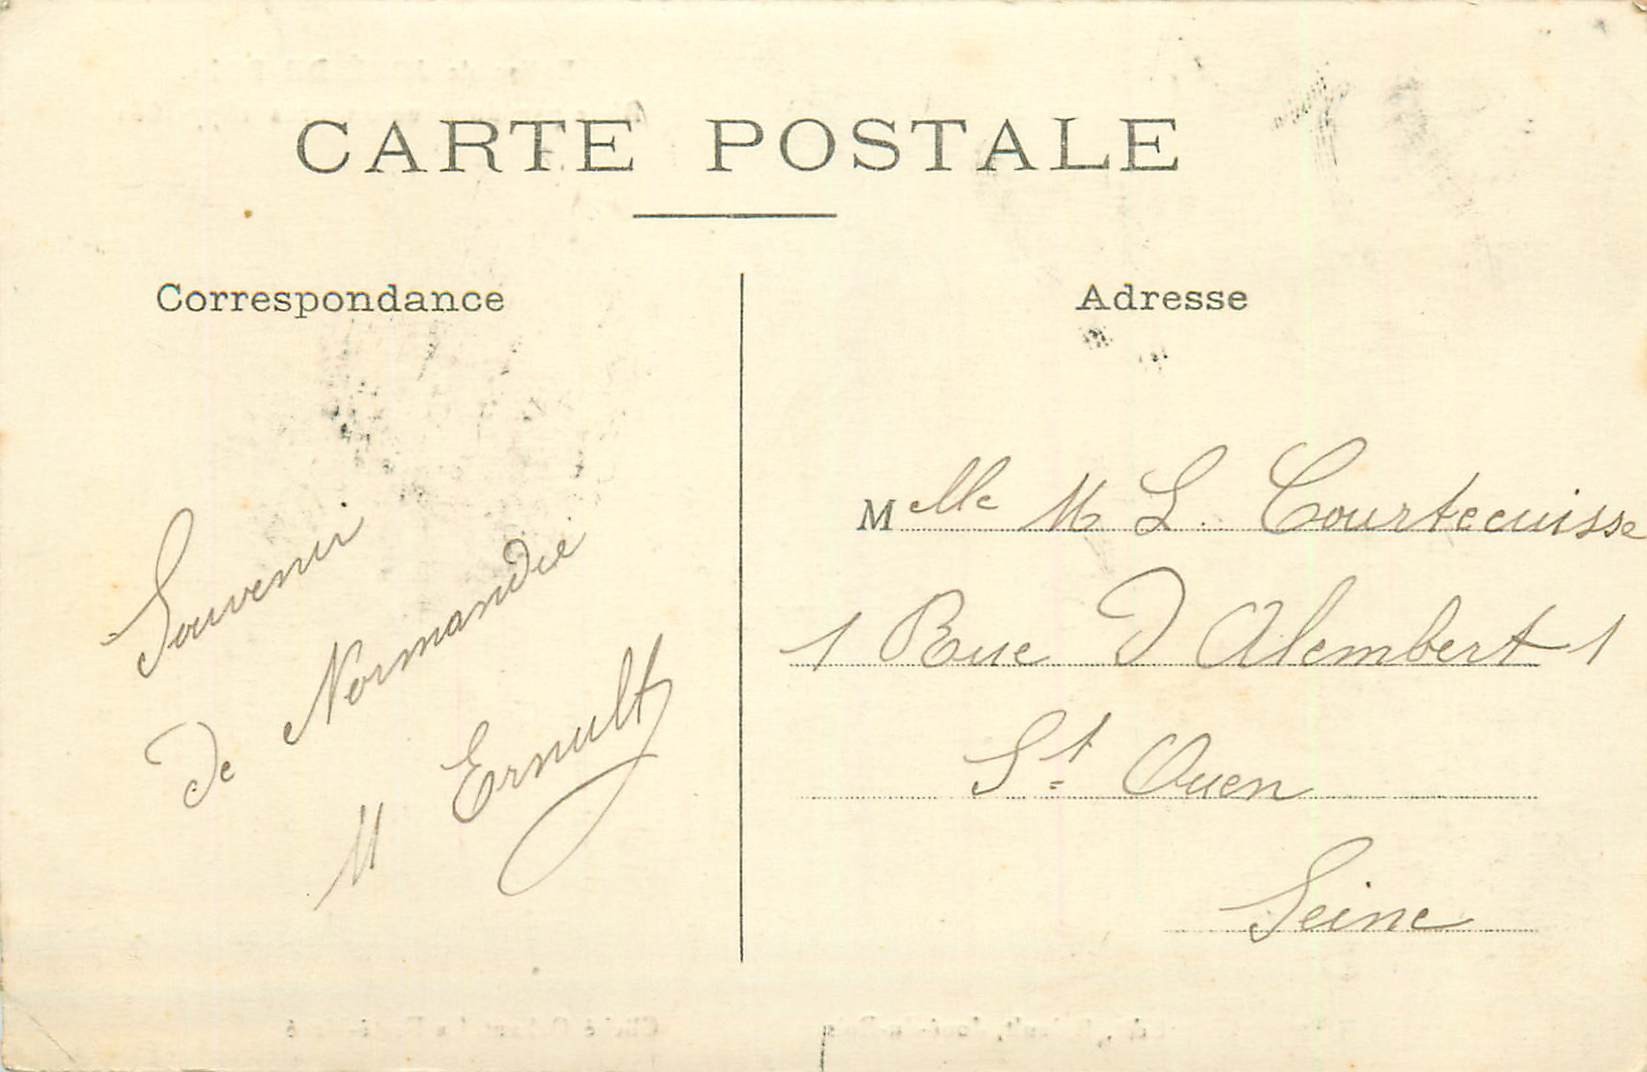 CARTE POSTALE
Correspondance
Souvenir
de Normandie
M Ernult
Adresse
Melle M L. Courtecuisse
1 Rue D Alembert 1
St Ouen
Seine